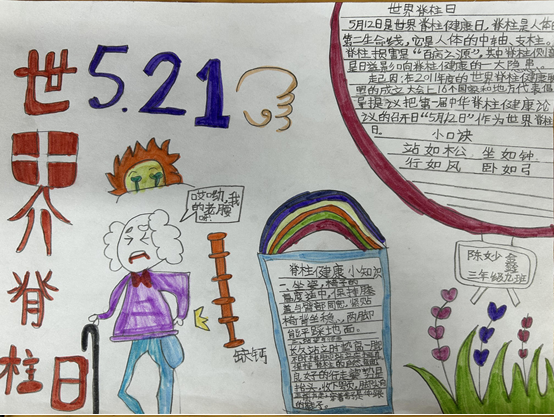 世界脊柱日
5.21
世界脊柱日
5月12日是世界脊柱健康日,脊柱是人体的
第二生命线,它是人体的中轴、支柱。
脊柱损害是“百病之源”,其中脊柱侧
是日益影响健康的一大隐患。
起因:在2011年度的世界脊柱健康
盟的成立大会上16个国家和地方代表倡
量提议把第一届中华脊柱健康论
议的召开日“5月12日”作为世界脊柱
日。
小口诀
站如松 坐如钟
行如风 卧如弓
哎呦,我
的老腰
呀
缺钙
脊柱健康小知识
一、坐姿,椅子的
高度适中,保持膝
盖与臀部同宽,紧贴
椅背坐稳,两脚
能平踩地面。
陈妙鑫
三年级九班